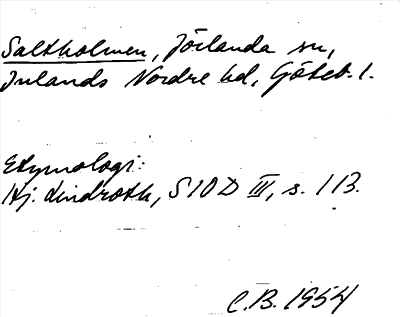 Saltholmen, Jörlanda sn,
Inlands Nordre hd, Göteb. l.
Etymologi:
Hj. Lindroth, SIOD III, s. 113.
C.B. 1954